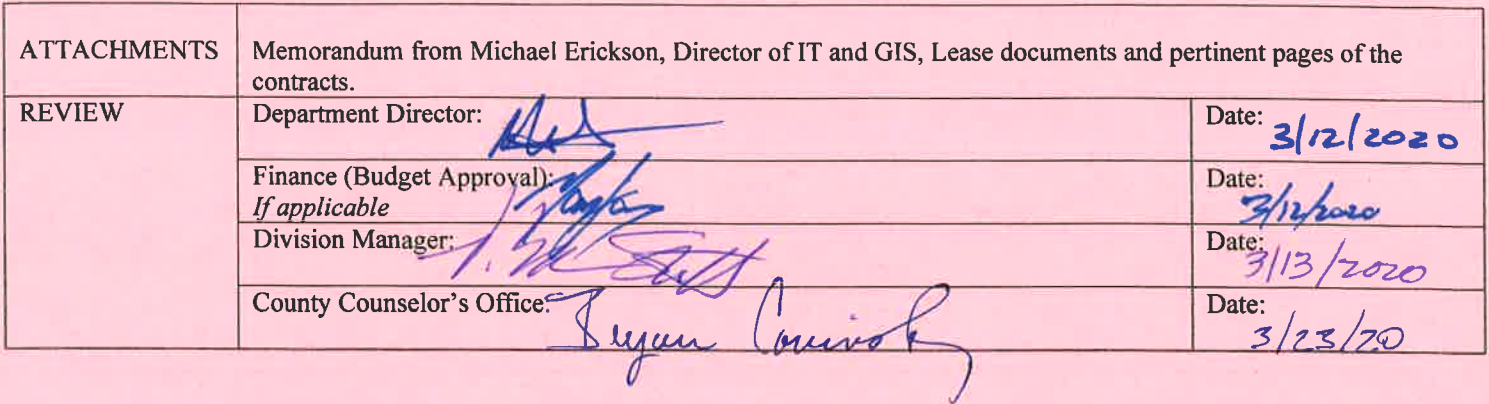 ATTACHMENTS
Memorandum from Michael Erickson, Director of IT and GIS, Lease documents and pertinent pages of the
contracts.
REVIEW
Department Director:
Date: 3/12/2020
Finance (Budget Approval):
If applicable
Date:
3/12/2020
Division Manager:
Date:
3/13/2020
County Counselor's Office:
Bryan
Date:
3/23/20